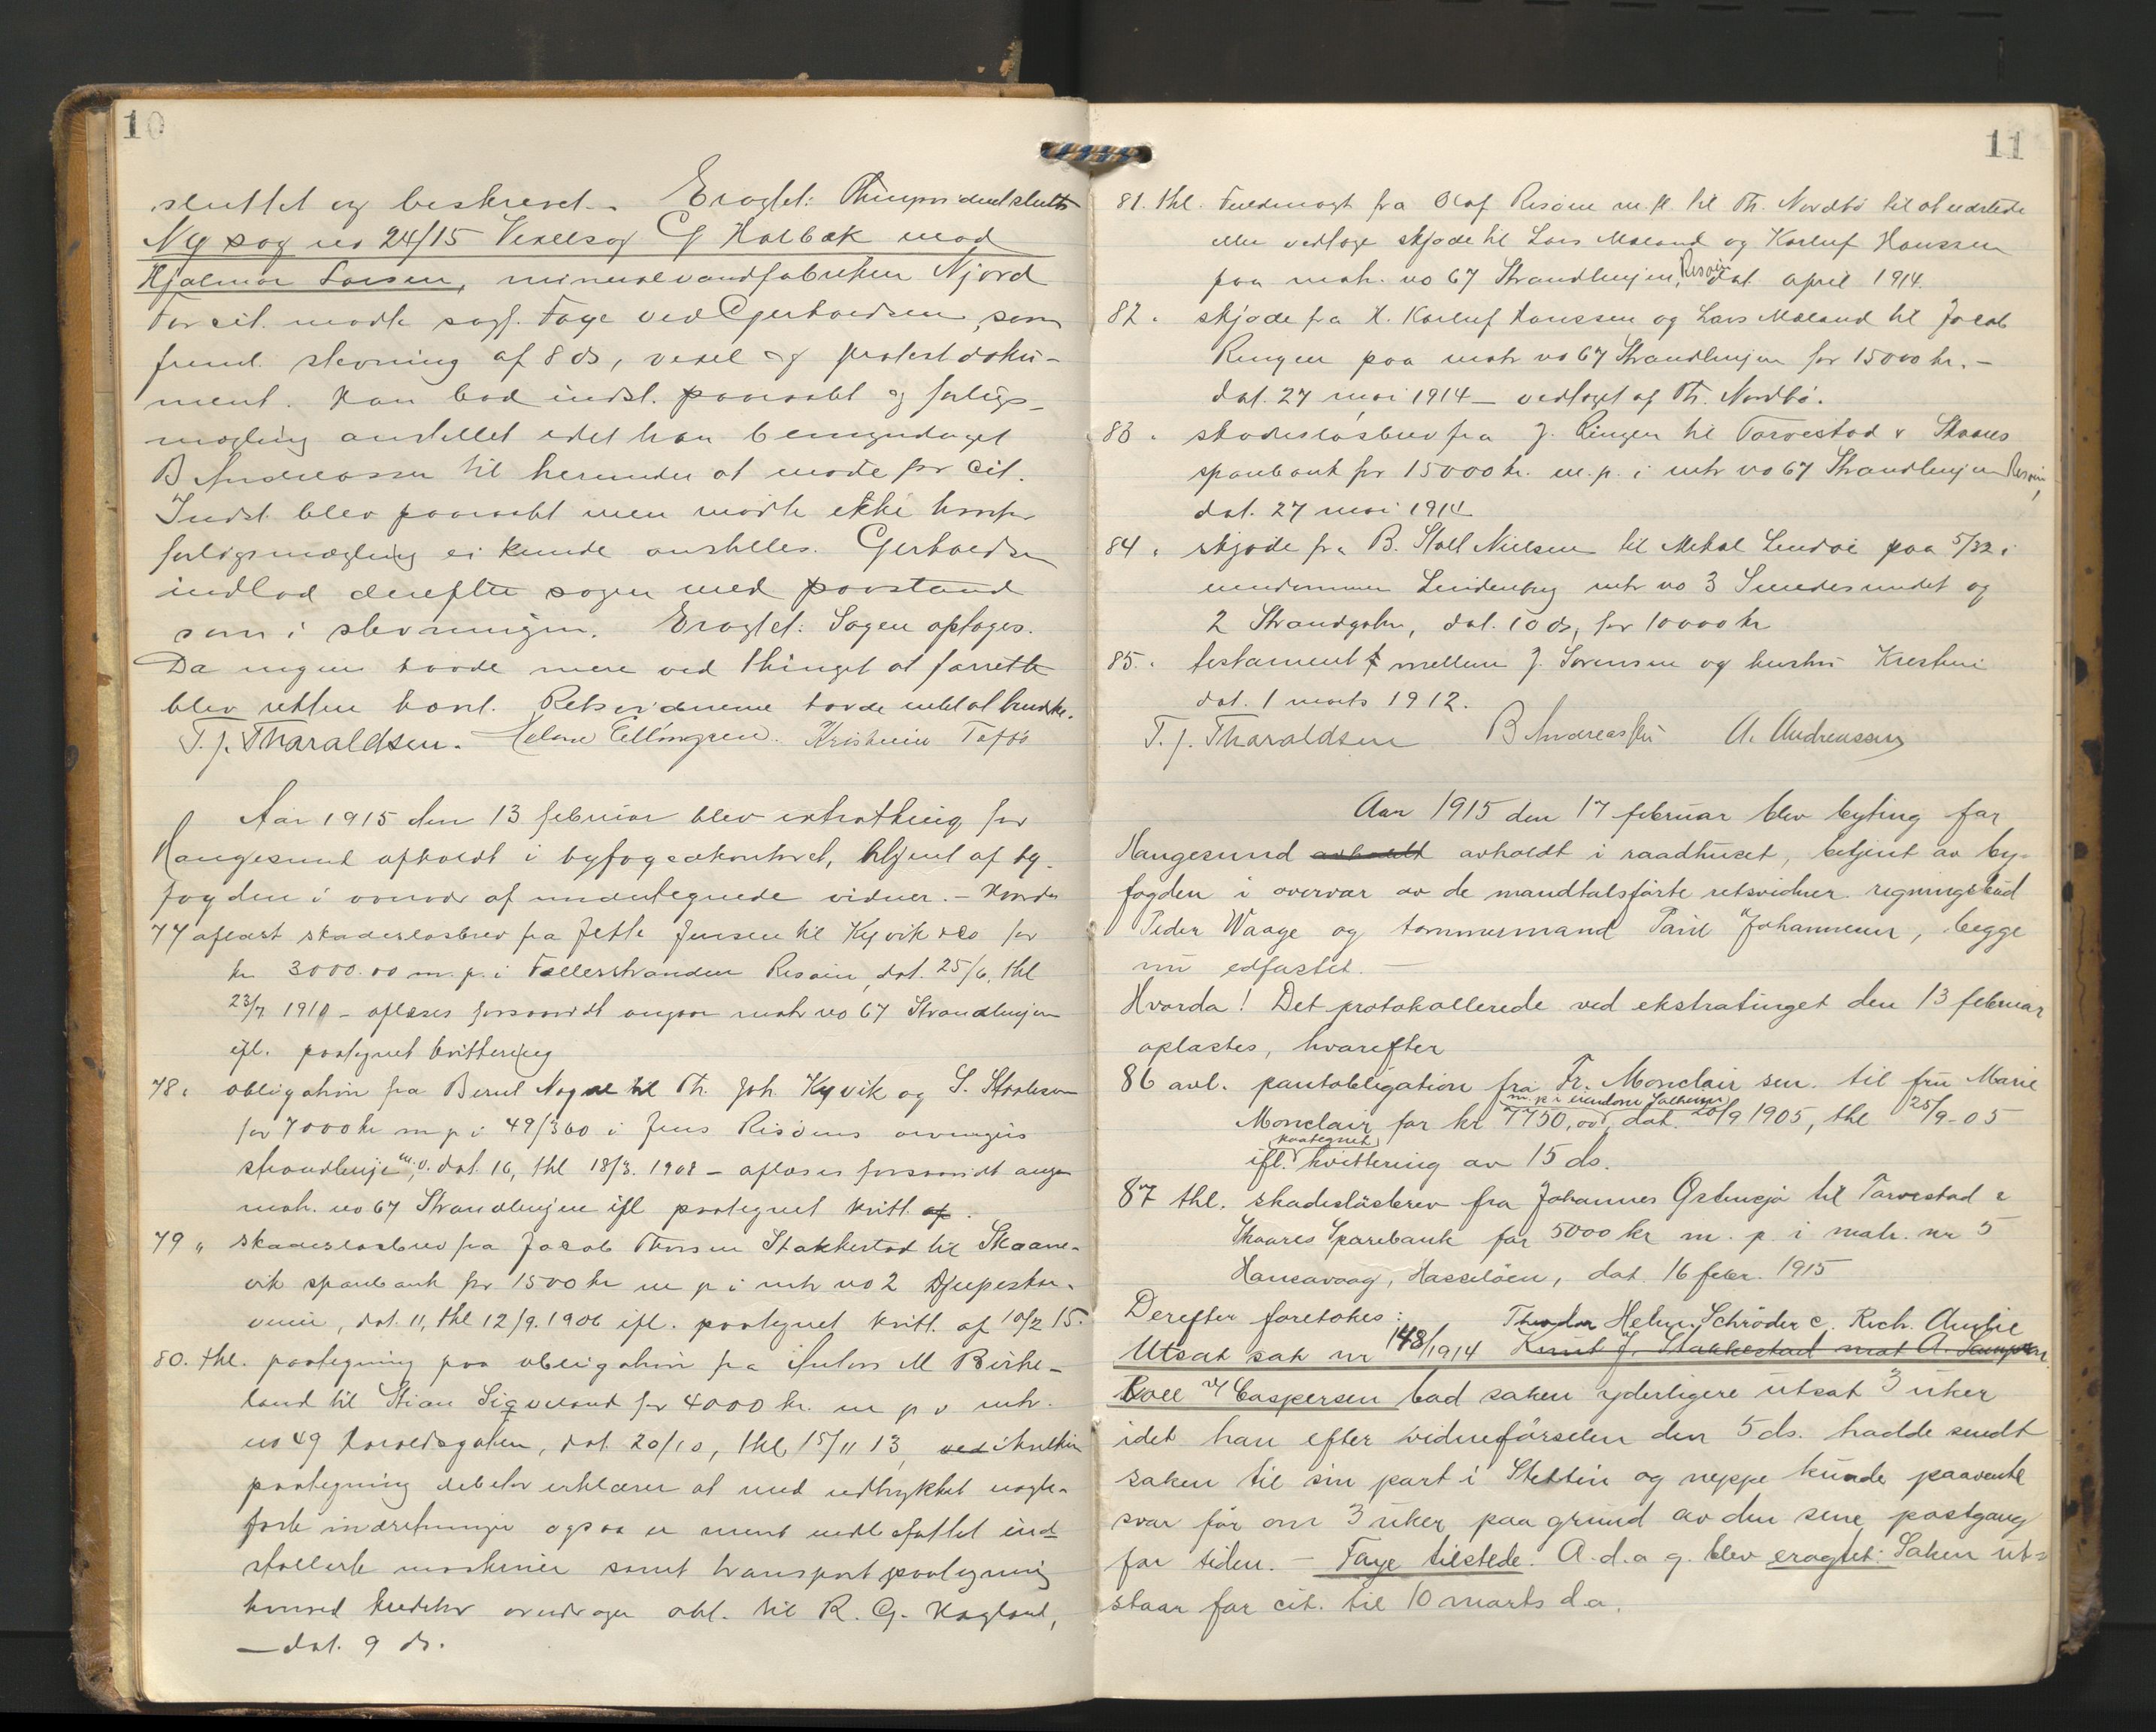 10
sluttet og beskrevet. Eragtet: Thingsvidnet sluttes
Ny sag no 24/15 Vexelsag G Holbæk mod
Hjalmar Larsen, mineralvandfabriken Njord
For cit. mødte sagf. Faye ved Gjerhardsen, som
freml. stevning af 8 ds, vexel og protestdoku-
ment. Han bad indst. paaraabt og forligs-
mægling anstillet idet han bemyndiget
B Andreassen til herunder at møde for cit.
Indst. blev paaraabt men mødte ikke hvorfor
forligsmægling ei kunde anstilles. Gerhardsen
indlod derefter sagen med paastand
som i stevningen. Eragtet: Sagen optages.
Da ingen havde mere ved thinget at forrette
blev retten hævet. Retsvidnerne havde intet at bemærke.
T. J. Tharaldsen. Helene Ellingsen. Kristinin Toftø
Aar 1915 den 13 februar blev extrathing for
Haugesund afholdt i byfogedkontoret, betjent af by-
fogden i overvær af undertegnede vidner. – Hvorda
77 aflæst skadesløsbrev fra Jette Jensen til Kyvik & co for
kr 3000.00 m. p. i Fællesstranden Risøin, dat. 25/6, thl
23/7 1910 – aflæses forsaavidt angaar matr no 67 Strandlinjen
ifl. paategnet kvittering
78 „ obligation fra Bernt Nagel til Th. Joh. Kyvik og S. Staalesen
for 7000 kr m p i 49/360 i Jens Risøens arvingers
strandlinje m.v. dat. 16, thl 18/3. 1908 – aflæses forsaavidt angaar
matr. no 67 Strandlinjen ifl paategnet kvitt. af.
79 „ skadesløsbrev fra Jacob Thorsen Stakkestad til Skaane-
vik sparebank for 1500 kr m p i mtr no 2 Djupeskar-
veien, dat. 11, thl 12/9. 1906 ifl. paategnet kvitt. af 10/2 15.
80. thl. paategning paa obligation fra Anton M Birke-
land til Stian Sigveland for 4000 kr. m p i mtr.
no 49 Haraldsgaten, dat. 20/10, thl 15/11 13, ved i hvilken
paategning debitor erklærer at med udtrykket nagle-
faste indretninger ogsaa er ment indbefattet ind-
stallerte maskiner samt transportpaategning
hvorved kreditor overdrager obl. til R. G. Hagland,
– dat. 9 ds.
11
81. thl. Fuldmagt fra Olaf Risøen m. fl. til Th. Nordbø til at udstede
eller vedtage skjøde til Lars Møland og Karluf Hanssen
paa matr. no 67 Strandlinjen, Risøin dat. april 1914.
82 „ skjøde fra H. Karluf Hanssen og Lars Møland til Jacob
Ringen paa matr no 67 Strandlinjen for 15000 kr. –
dat. 27 mai 1914 – vedtaget af Th. Nordbø.
83 „ skadesløsbrev fra J. Ringen til Torvestad & Skaares
sparebank for 15000 kr. m. p. i mtr no 67 Strandlinjen Risøin,
dat. 27 mai 1914
84 „ skjøde fra B. Stoll Nielsen til Mekal Lindøe paa 5/32 i
eiendommen Lindenberg mtr no 3 Smedesundet og
2 Strandgaten, dat. 10 ds, for 10000 kr
85. „ testament mellem J. Sørensen og hustru Kristine
dat. 1 marts 1912.
T. J. Tharaldsen B Andreassen A. Andreassen
Aar 1915 den 17 februar blev byting for
Haugesund avholdt avholdt i raadhuset, betjent av by-
fogden i overvær av de mandtalsførte retsvidner regningsbud
Peder Waage og tømmermand Paul Johannesen, begge
nu edfæstet. –
Hvorda! Det protokollerede ved ekstratinget den 13 februar
oplæstes, hvorefter
86 avl. pantobligation fra Fr. Monclair sen. til fru Marie
m. p i eiendom Solheim
Monclair for kr 7750,00, dat. 20/9 1905, thl 25/9-05
paategnet
ifl. kvittering av 15 ds.
87 thl. skadesløsbrev fra Johannes Østensjø til Torvestad &
Skaares Sparebank for 5000 kr m. p. i matr. nr 5
Hansavaag, Hasseløen, dat. 16 febr. 1915
Derefter foretokes: Theodor Helm. Schrøder c. Rich. Amlie
Utsat sak nr 148/1914 Knut J. Stakkestad mot A. Sampson.
Coll v/ Caspersen bad saken yderligere utsat 3 uker
idet han efter vidneførselen den 5 ds. hadde sendt
saken til sin part i Stettin og neppe kunde paavente
svar før om 3 uker paa grund av den sene postgang
for tiden. – Faye tilstede. A. d. a g. blev eragtet: Saken ut-
staar for cit. til 10 marts d.a.